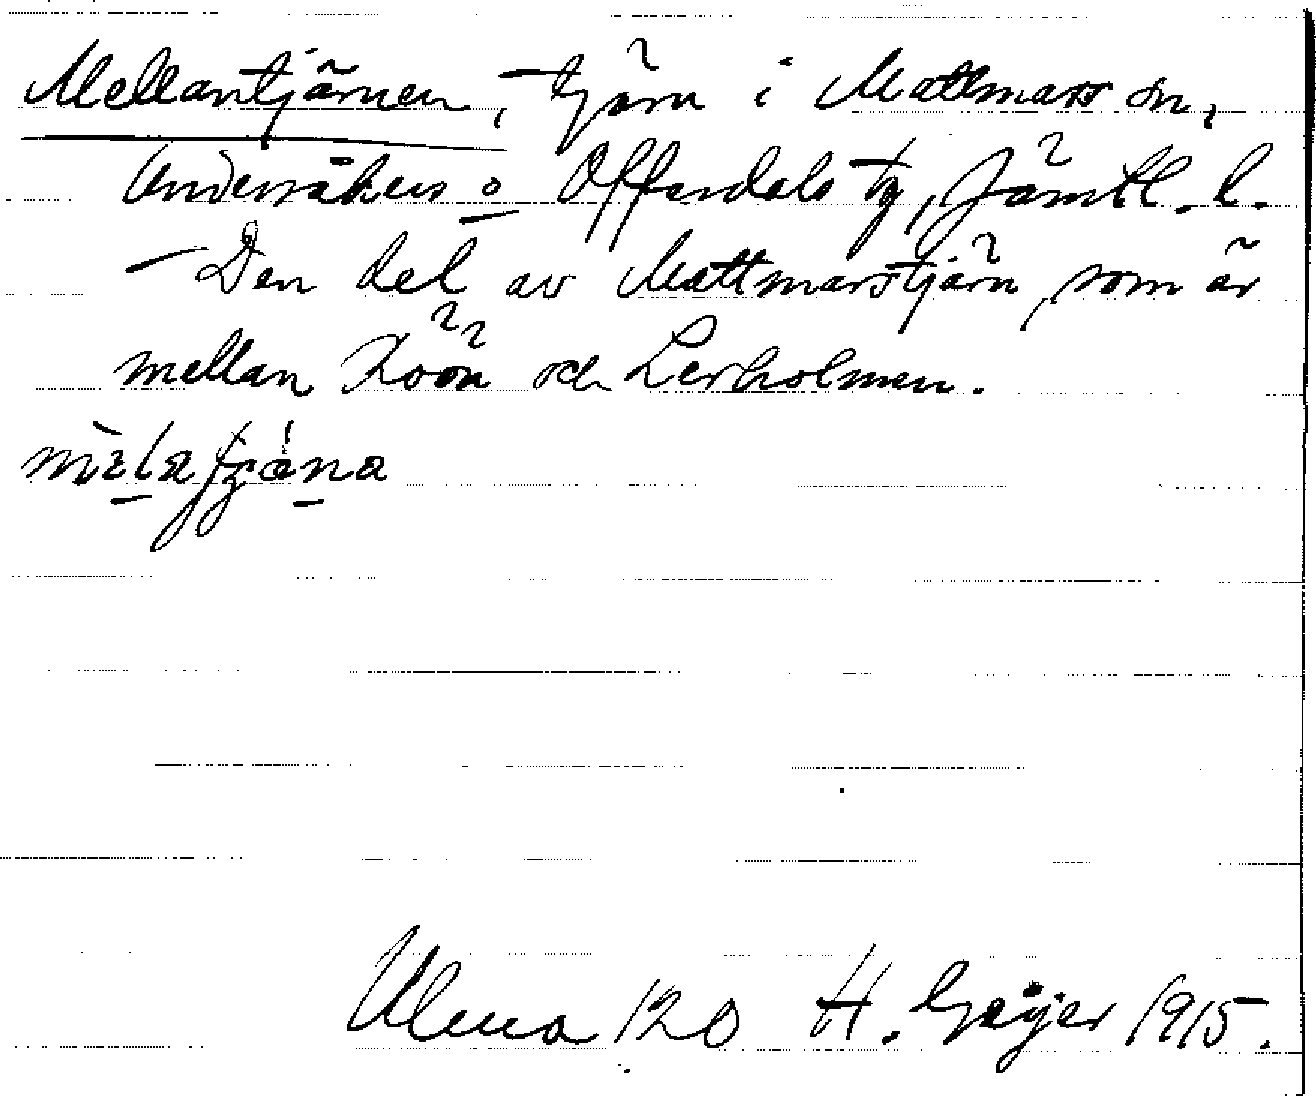 Mellantjärnen, tjärn i Mattmars sn,
Undersåkers o Offerdals tg, Jämtl. l.
- Den del av Mattmarstjärn, som är
mellan Koön och Lerholmen.
Ulma 120 H. Geijer 1915.